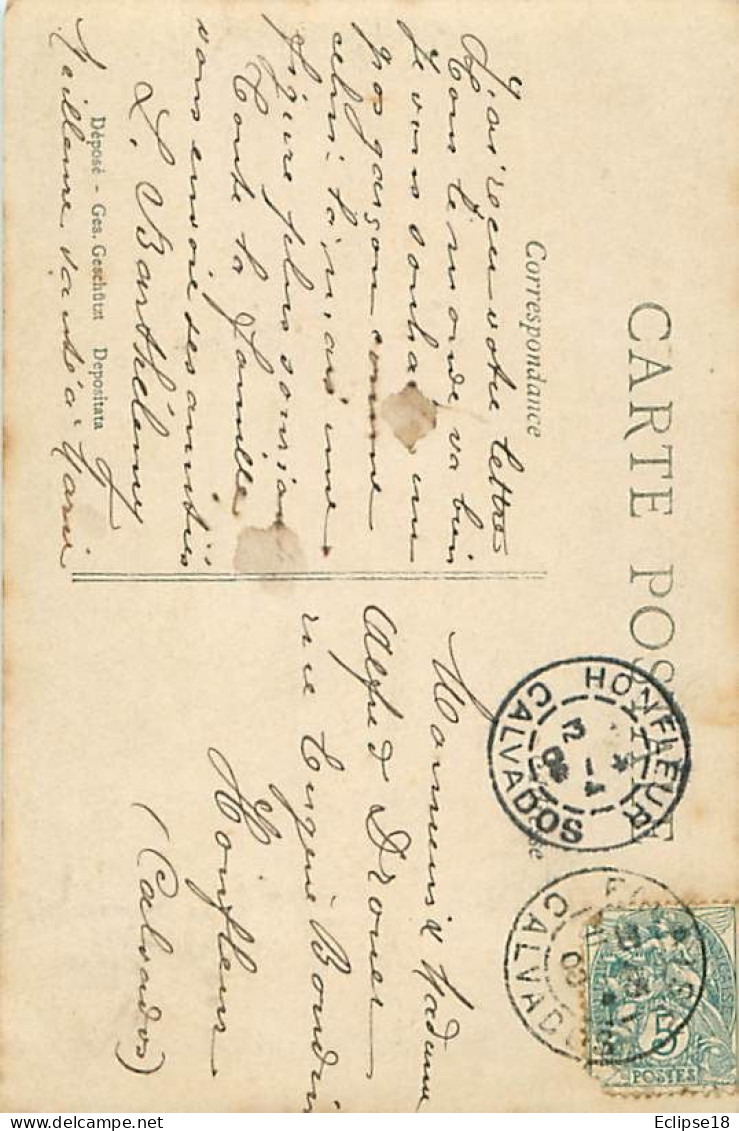 CARTE POSTALE
Correspondance
J'ai reçu votre lettre
tous le monde va bien
Je vous souha un
gros garçon comme
celui là mais une
figure plus
toute la famille
vous envoie ses amitiés
L. Barthélemy
Meilleure santé à Marie
Déposé - Ges. Geschützt Depositata
Monsieur & Madame
Alfred
rue Eugène Boudin
Honfleur
(Calvados)
HONFLEUR
CALVADOS
CALVADOS
5
POSTES
Eclipse18